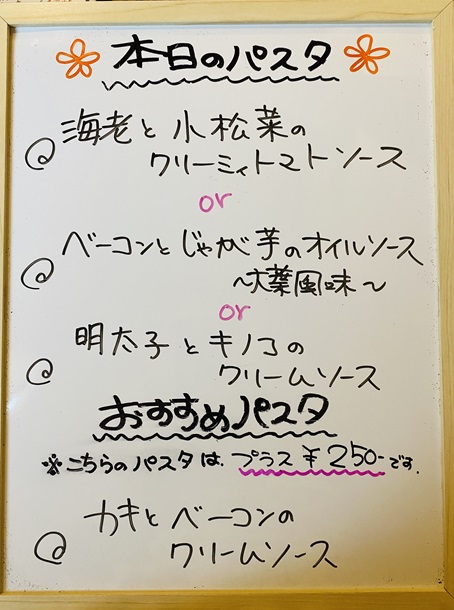 本日のパスタ
海老と小松菜の
クリーミィトマトソース
or
ベーコンとじゃが芋のオイルソース
〜大葉風味〜
or
明太子とキノコの
クリームソース
おすすめパスタ
※こちらのパスタは、プラス¥250-です.
カキとベーコンの
クリームソース